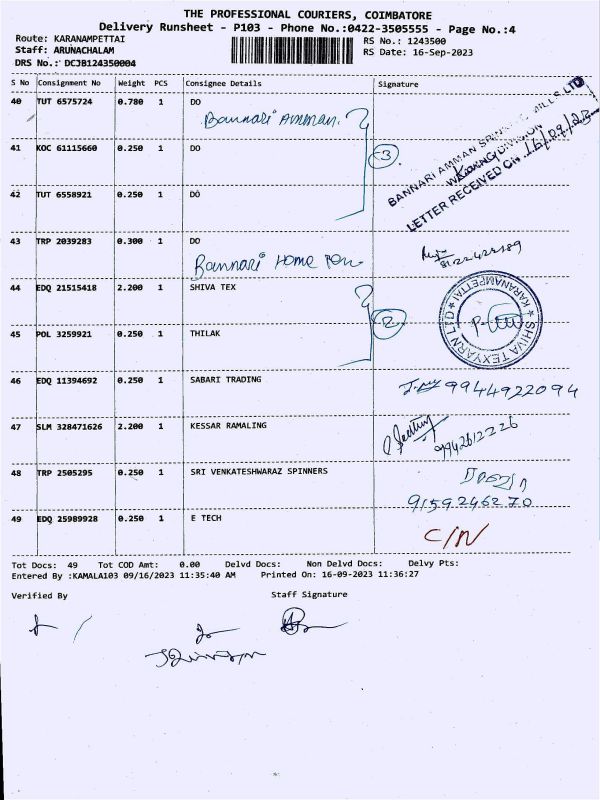 THE PROFESSIONAL COURIERS, COIMBATORE
Delivery Runsheet - P103 - Phone No.:0422-3505555 - Page No.:4
Route: KARANAMPETTAI
RS No.: 1243500
Staff: ARUNACHALAM
RS Date: 16-Sep-2023
DRS No.: DCJB124350004
S No Consignment No Weight PCS Consignee Details Signature
40 TUT 6575724 0.780 1 DO
Bannari Amman.
41 KOC 61115660 0.250 1 DO
3
BANNARI AMMAN SPINNING MILLS LTD
WEAVING DIVISION
LETTER RECEIVED On 16/09/23
42 TUT 6558921 0.250 1 DO
43 TRP 2039283 0.300 1 DO
Bannari Home
44 EDQ 21515418 2.200 1 SHIVA TEX
2
SHIVA TEXYARN LTD * KARANAMPETTAI *
45 POL 3259921 0.250 1 THILAK
46 EDQ 11394692 0.250 1 SABARI TRADING
9944922094
47 SLM 328471626 2.200 1 KESSAR RAMALING
9942612226
48 TRP 2505295 0.250 1 SRI VENKATESHWARAZ SPINNERS
9159246270
49 EDQ 25989928 0.250 1 E TECH
C/N
Tot Docs: 49 Tot COD Amt: 0.00 Delvd Docs: Non Delvd Docs: Delvy Pts:
Entered By :KAMALA103 09/16/2023 11:35:40 AM Printed On: 16-09-2023 11:36:27
Verified By Staff Signature